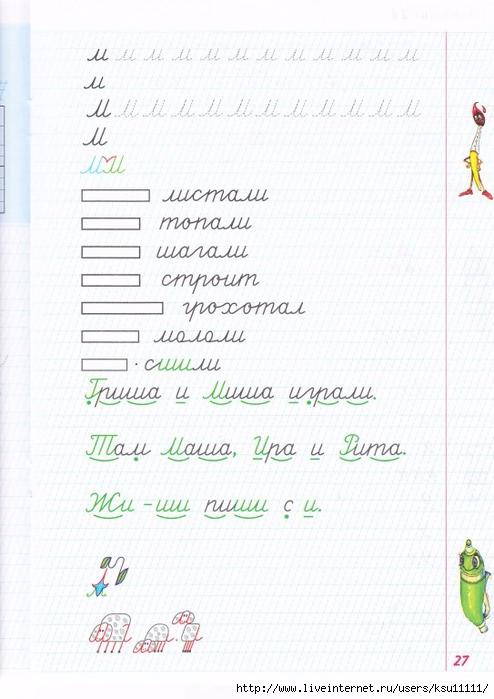 м м м м м м м м м м м м
м
М М М М М М М М М М М М
М
листали
топали
шагали
строит
грохотал
мололи
· сшили
Гриша и Миша играли.
Там Маша, Ира и Рита.
Жи - ши пиши с и.
27
http://www.liveinternet.ru/users/ksu11111/